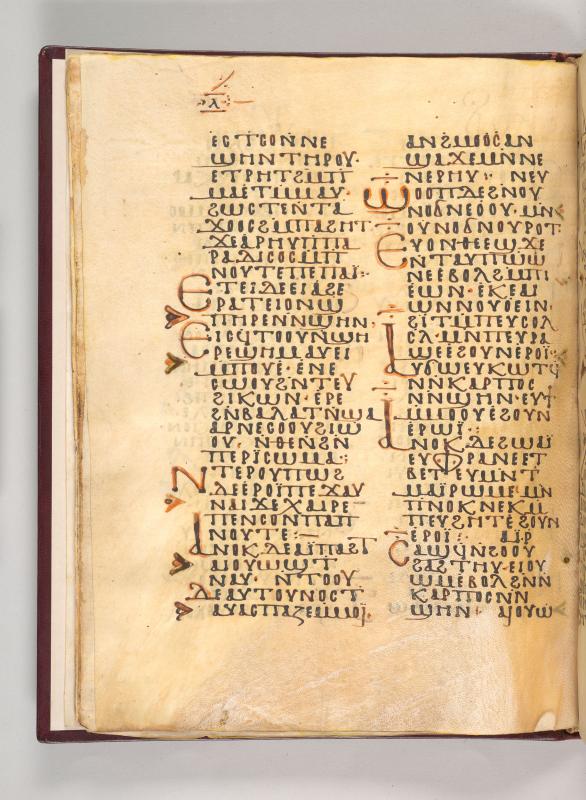 ⲗ
ⲉⲥⲧⲥⲟⲛⲛⲉ
ϣⲏⲛⲧⲏⲣⲟⲩ·
ⲉⲧⲣⲏⲧϩⲙⲡⲓ
ⲙⲁⲉⲧⲙⲙⲁⲩ·
ϩⲱⲥⲧⲉⲛⲧⲁ
ϫⲟⲟⲥϩⲙⲡⲁϩⲏⲧ
ϫⲉⲁⲣⲏⲩⲡⲓⲡⲁ
ⲣⲁⲇⲓⲥⲟⲥⲙⲡ
ⲛⲟⲩⲧⲉⲡⲉⲡⲁⲓ̈:
ⲉⲧⲉⲓⲇⲉⲉⲓⲁϩⲉ
ⲉⲣⲁⲧⲉⲓⲟⲛϣ
ⲡⲏⲣⲉⲛⲛϣⲏⲛ·
ⲉⲓⲥϥⲧⲟⲟⲩⲛϣⲏ
ⲣⲉϣⲏⲙⲁⲩⲉⲓ
ⲙⲡⲟⲩⲉ·ⲉⲛⲉ
ⲥⲱⲟⲩϩⲛⲧⲉⲩ
ϩⲓⲕⲱⲛ·ⲉⲣⲉ
ϩⲛⲃⲁⲗⲁⲧⲛϣⲁ
ⲁⲣⲛⲉⲥⲟⲟⲩϩⲓⲱ
ⲟⲩ·ⲛⲑⲉⲛϩⲛ
ⲡⲉⲣⲓⲥⲱⲙⲁ:
ⲛⲧⲉⲣⲟⲩⲡⲱϩ
ⲇⲉⲉⲣⲟⲓ̈ⲡⲉϫⲁⲩ
ⲛⲁⲓϫⲉⲭⲁⲓⲣⲉ
ⲡⲉⲛⲥⲟⲛⲡⲁⲡ
ⲛⲟⲩⲧⲉ:
ⲁⲛⲟⲕⲇⲉⲁⲓ̈ⲡⲁϩⲧ
ⲁⲓⲟⲩⲱϣⲧ
ⲛⲁⲩ·ⲛⲧⲟⲟⲩ
ⲇⲉⲁⲩⲧⲟⲩⲛⲟⲥⲧ
ⲁⲩⲁⲥⲡⲁⲍⲉⲙⲙⲟⲓ̈
ⲁⲛϩⲙⲟⲟⲥⲁⲛ
ϣⲁϫⲉⲙⲛⲛⲉ
ⲛⲉⲣⲏⲩ·ⲛⲉⲩ
ϣⲟⲟⲡⲇⲉϩⲛⲟⲩ
ⲛⲟϭⲛⲉⲟⲟⲩ·ⲙⲛ
ⲟⲩⲛⲟϭⲛⲟⲩⲣⲟⲧ
ⲉⲩⲟⲛⲑⲉⲉϣϫⲉ
ⲉⲛⲧⲁⲩⲡⲱⲱ
ⲛⲉⲉⲃⲟⲗϩⲙⲡⲓ
ⲉⲱⲛ·ⲉⲕⲉⲁⲓ
ⲱⲛⲛⲟⲩⲟⲉⲓⲛ·
ϩⲓⲧⲙⲡⲉⲩⲥⲟⲗ
ⲥⲗ·ⲙⲛⲡⲉⲩⲣⲁ
ϣⲉⲉϩⲟⲩⲛⲉⲣⲟⲓ̈:
ⲁⲩϭⲱⲉⲩⲕⲱⲧϥ
ⲛⲛⲕⲁⲣⲡⲟⲥ
ⲛⲛϣⲏⲛ·ⲉⲩϯ
ⲙⲙⲟⲟⲩⲉϩⲟⲩⲛ
ⲉⲣⲱⲓ̈:
ⲁⲛⲟⲕⲇⲉϩⲱⲱⲓ̈
ⲉⲩⲫⲣⲁⲛⲉⲉⲧ
ⲃⲉⲧⲉⲩⲙⲛⲧ
ⲙⲁⲓ̈ⲣⲱⲙⲉ·ⲙⲛ
ⲡⲛⲟⲕⲛⲉⲕⲙ
ⲡⲉⲩϩⲏⲧⲉϩⲟⲩⲛ
ⲉⲣⲟⲓ̈:ⲁⲓ̈ⲣ
ⲥⲁϣϥⲛϩⲟⲟⲩ
ϩⲁϩⲧⲏⲩ·ⲉⲓⲟⲩ
ⲱⲙⲉⲃⲟⲗϩⲛⲛ
ⲕⲁⲣⲡⲟⲥⲛⲛ
ϣⲏⲛ·ⲁⲓⲟⲩⲱ